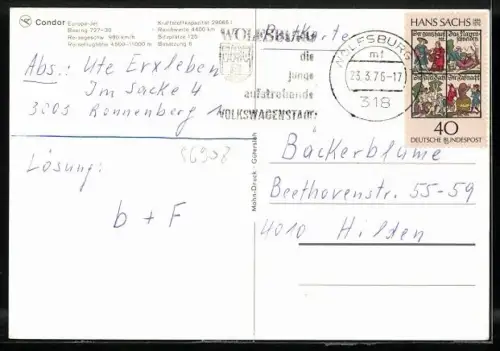 Condor
Europa-Jet
Boeing 727-30
Reisegeschw. 980 km/h
Reiseflughöhe 4600-11000 m
Kraftstoffkapazität 29065 l
Reichweite 4400 km
Sitzplätze 125
Besatzung 6
Postkarte
WOLFSBURG
die
junge
aufstrebende
VOLKSWAGENSTADT
WOLFSBURG
mf
23.3.76-17
318
HANS SACHS
40
DEUTSCHE BUNDESPOST
Abs.: Ute Erxleben
Im Sacke 4
3003 Ronnenberg 1
Lösung:
b + F
Mohn-Druck · Gütersloh
Bäckerblume
Beethovenstr. 55-59
4010 Hilden